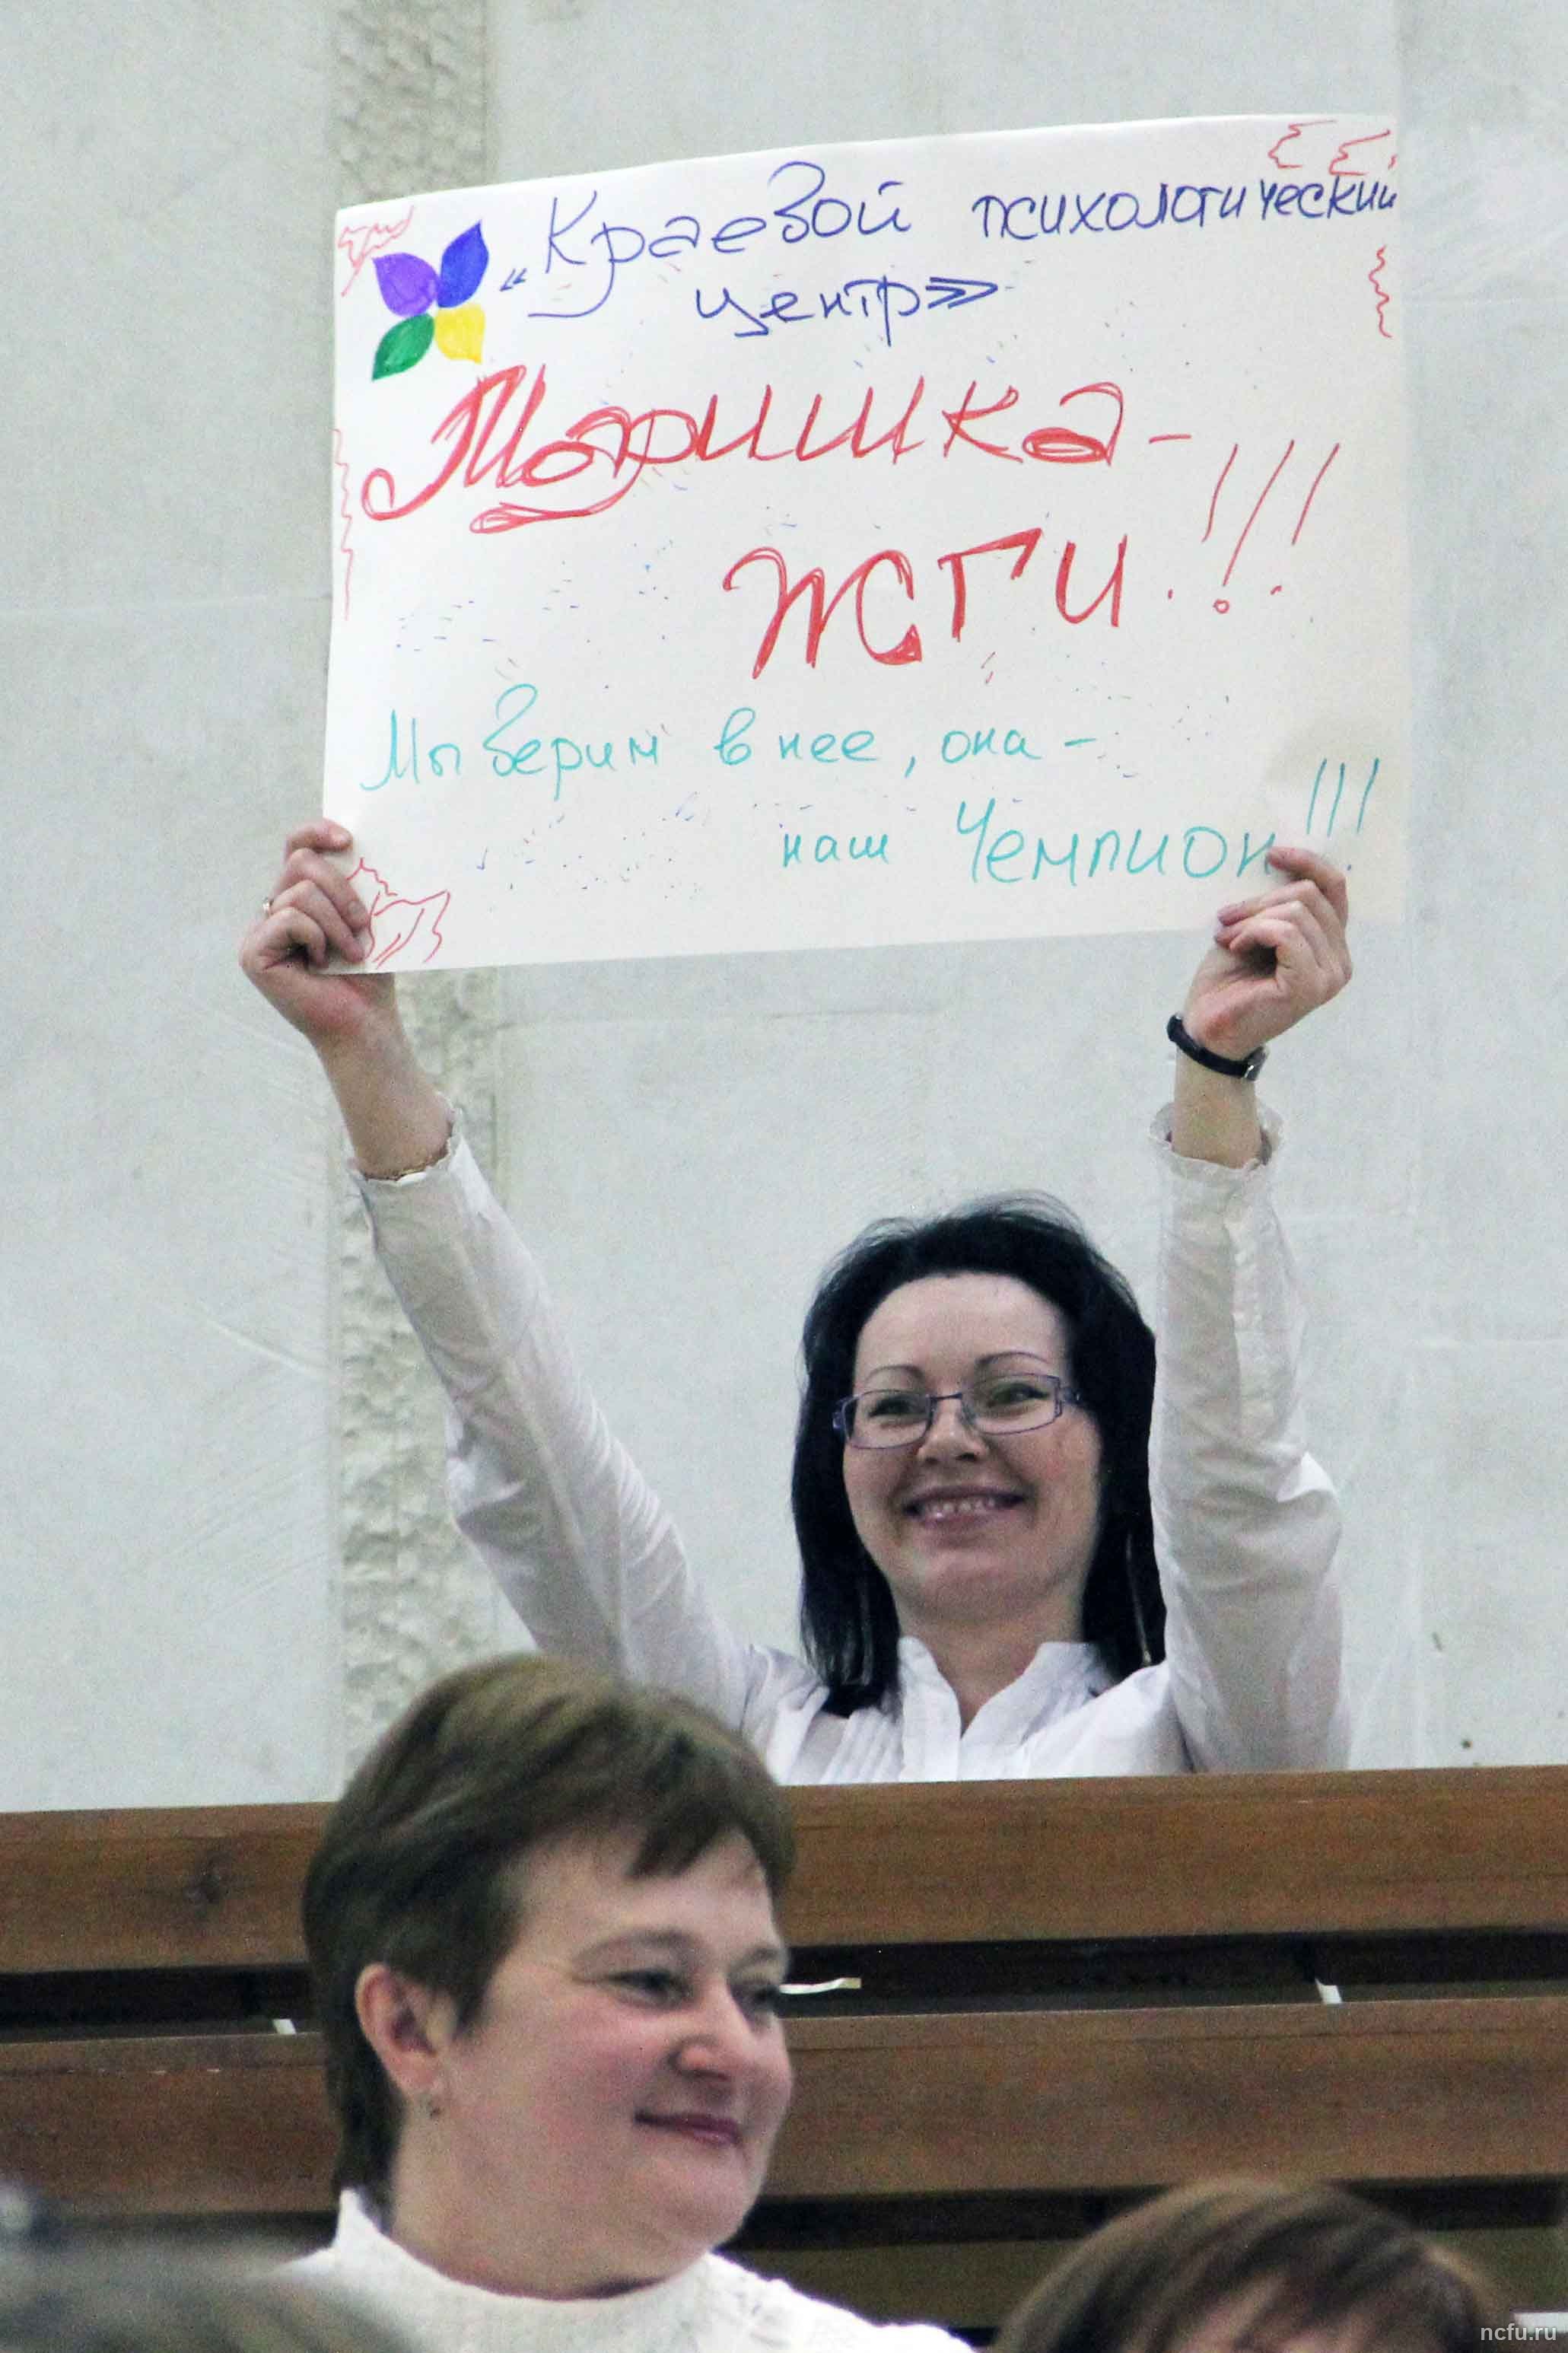 „Краевой психологический
центр»
Маришка-
жги!!!
Мы верим в нее, она-
наш Чемпион!!!
ncfu.ru